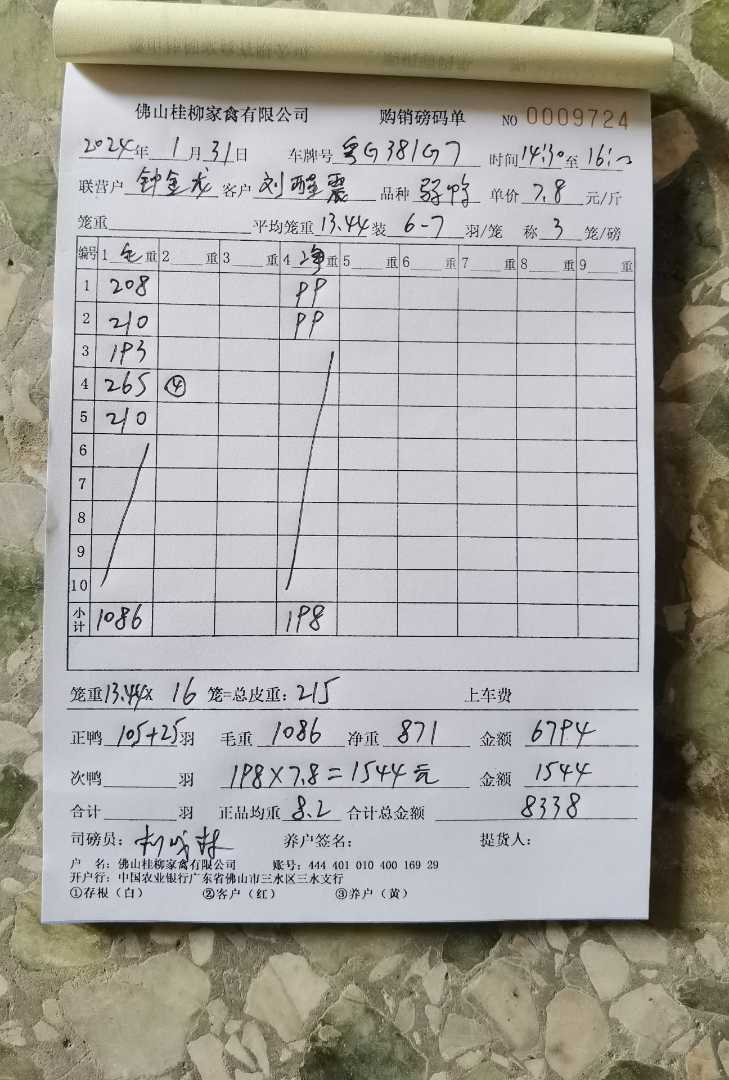 佛山桂柳家禽有限公司 购销磅码单 NO 0009724
2024年 1月 31日 车牌号 粤G381G7 时间14:30至16:
联营户 钟金龙 客户 刘 品种 单价 7.8 元/斤
笼重 平均笼重 13.44 装 6-7 羽/笼 称 3 笼/磅
编号 1 毛重 2 重 3 重 4 净重 5 重 6 重 7 重 8 重 9 重
1 208 99
2 210 99
3 193
4 265 ④
5 210
6
7
8
9
10
小计 1086 198
笼重13.44× 16 笼=总皮重: 215 上车费
正鸭 105+25羽 毛重 1086 净重 871 金额 6794
次鸭 羽 198×7.8=1544元 金额 1544
合计 羽 正品均重 8.2 合计总金额 8338
司磅员: 养户签名: 提货人:
户 名: 佛山桂柳家禽有限公司 账号: 444 401 010 400 169 29
开户行: 中国农业银行广东省佛山市三水区三水支行
①存根（白） ②客户（红） ③养户（黄）